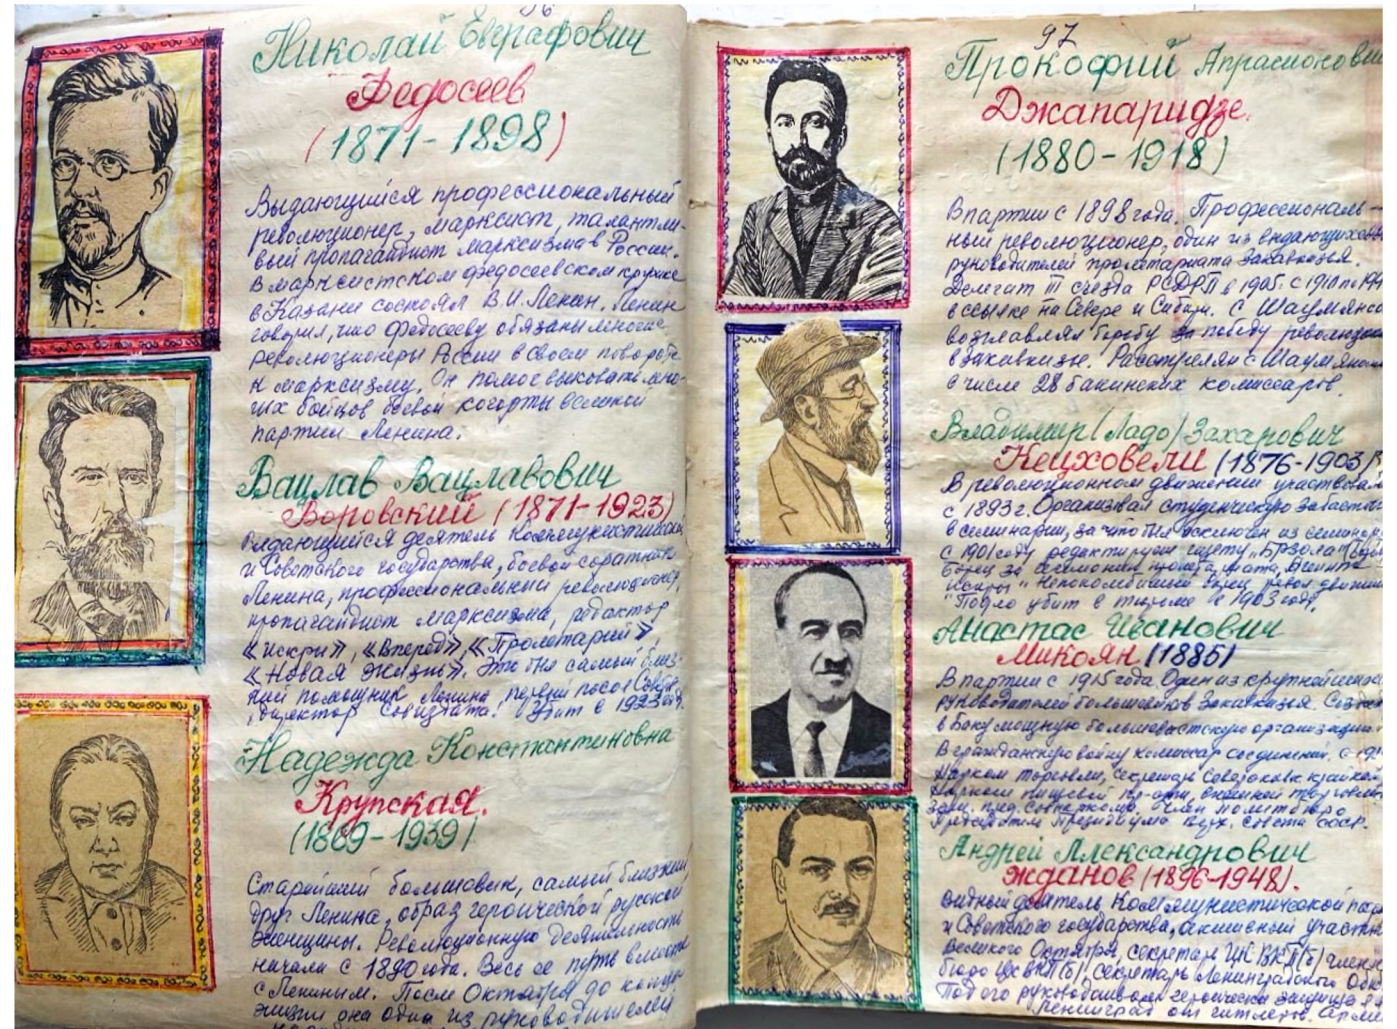 96
Николай Евграфович
Федосеев
(1871-1898)
Выдающийся профессиональный
революционер, марксист, талантли-
вый пропагандист марксизма в России.
В марксистском федосеевском кружке
в Казани состоял В.И. Ленин. Ленин
говорил, что Федосееву обязаны многие
революционеры России в своем повороте
к марксизму. Он помог выковать мно-
гих бойцов боевой когорты великой
партии Ленина.
Вацлав Вацлавович
Воровский (1871-1923)
Выдающийся деятель Коммунистической
и Советского государства, боевой соратник
Ленина, профессиональный революционер,
пропагандист марксизма, редактор
«Искры», «Вперед», «Пролетарий»,
«Новая Жизнь». Это был самый близ-
кий помощник Ленина, первый посол
директор Убит в 1923 году.
Надежда Константиновна
Крупская.
(1869-1939)
Старейший большевик, самый близкий
друг Ленина, образ героической русской
женщины. Революционную деятельность
начали с 1890 года. Весь ее путь вместе
с Лениным. После Октября до конца
жизни она одна из руководителей
97
Прокофий Апрасионович
Джапаридзе.
(1880-1918)
В партии с 1898 года. Профессиональ-
ный революционер, один из выдающихся
руководителей пролетариата Закавказья.
Делегат III съезда РСДРП в 1905. С 1910 по
в ссылке на Севере и Сибири. С Шаумяном
возглавлял борьбу за победу революции
в Закавказье. Расстрелян с Шаумяном
в числе 26 бакинских комиссаров.
Владимир /Ладо/ Захарович
Кецховели (1876-1903)
В революционном движении участвовал
с 1893 г. Организовал студенческую забастов
в семинарии, за что был исключен из семинар
с 1901 году редактирует газету „Брдзола"
Борец за гегемонию пролетариата, агент
Искры
Подло убит в тюрьме в 1903 году.
Анастас Иванович
Микоян (1885)
В партии с 1915 года. Один из крупнейших
руководителей большевиков Закавказья. Создал
в Баку мощную большевистскую организацию.
В гражданскую войну комиссар соединений. С
Нарком торговли, секретарь
Нарком пищевой внешней торговли
зам. пред. Совнаркома. Член Политбюро
Председатель Президиума Верх. Совета СССР.
Андрей Александрович
Жданов (1896-1948).
Видный деятель Коммунистической пар
и Советского государства, активный участн
Великого Октября, секретарь ЦК ВКП(б) член
бюро ЦК ВКП(б), секретарь Ленинградского Обк
Под его руководством героически защищался
Ленинград от гитлер. арми